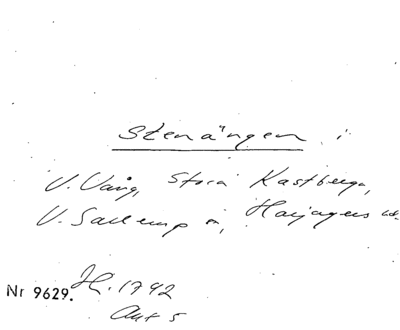 Stenängen i
V. Vång, Stora Kastberga,
V. Sallerup m, Harjagers hd.
Nr 9629. H. 1742
Akt 5